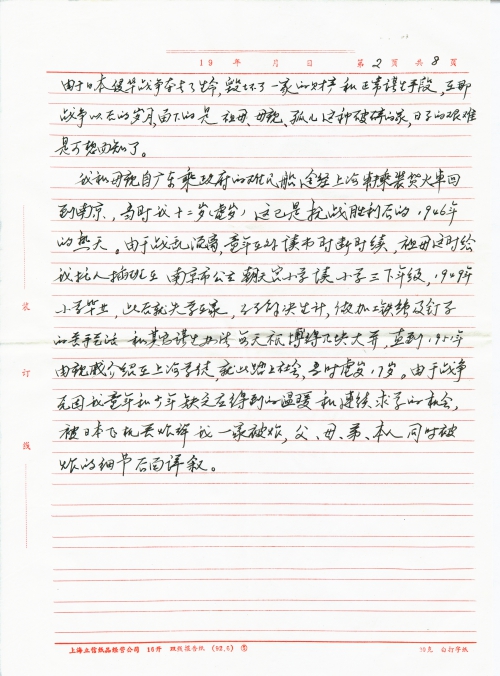 19 年 月 日 第2页 共8页
由于日本侵华战争夺去了生命，毁坏了一家的财产和正常谋生手段，在那
战争以后的岁月，留下的是祖母、母亲、孤儿这种破碎的家，日子的艰难
是可想而知了。
我和母亲自广东乘政府的难民船途经上海转乘装货火车回
到南京，当时我十二岁（虚岁）这已是抗战胜利后的1946年
的热天。由于战乱流离，童年在外读书时断时续，祖母这时给
我托人插班在南京市公立朝天宫小学读小学三下年级，1949年
小学毕业，此后就失学在家，
的手法和其它谋生办法每天
由亲戚介绍至上海学徒，就此踏上社会，是时虚岁17岁。由于战争
无因我童年和少年缺乏应得到的温暖和连续求学的机会，
被日本飞机轰炸我一家被炸，父、母、弟、本人同时被
炸的细节后面详叙。
装
订
线
上海立信纸品经营公司 16开 双线报告纸 (92.6) ⑤ 70克 白打字纸